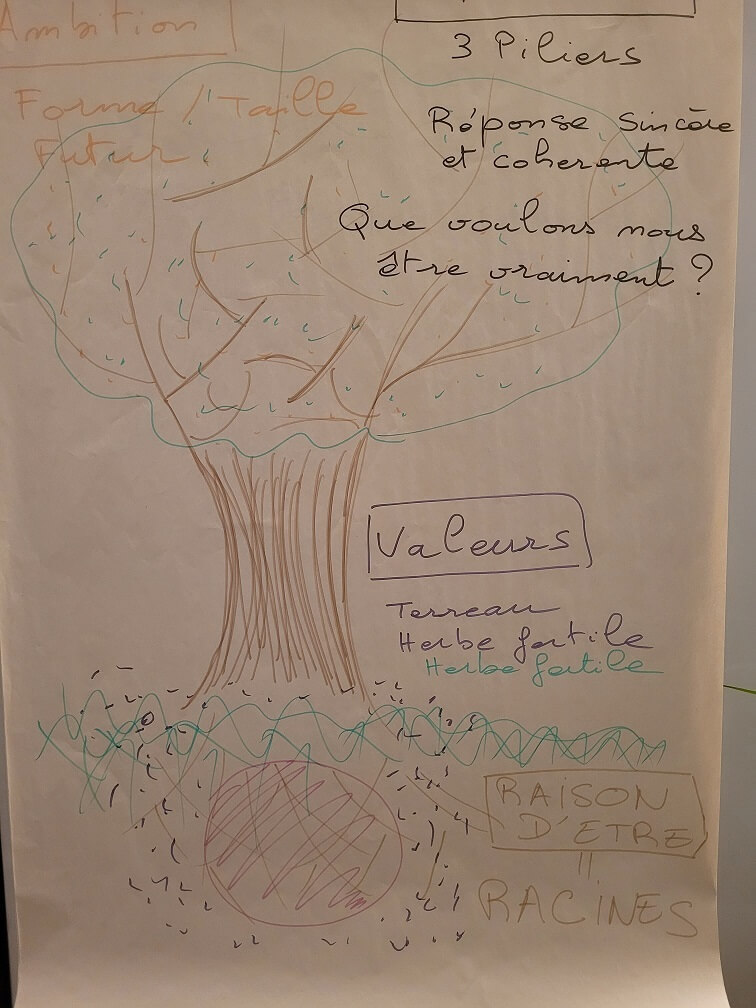 Ambition
Forme / Taille
Futur
3 Piliers
Réponse sincère
et coherente
Que voulons nous
être vraiment ?
Valeurs
Terreau
Herbe fertile
Herbe fertile
RAISON
D'ETRE
=
RACINES